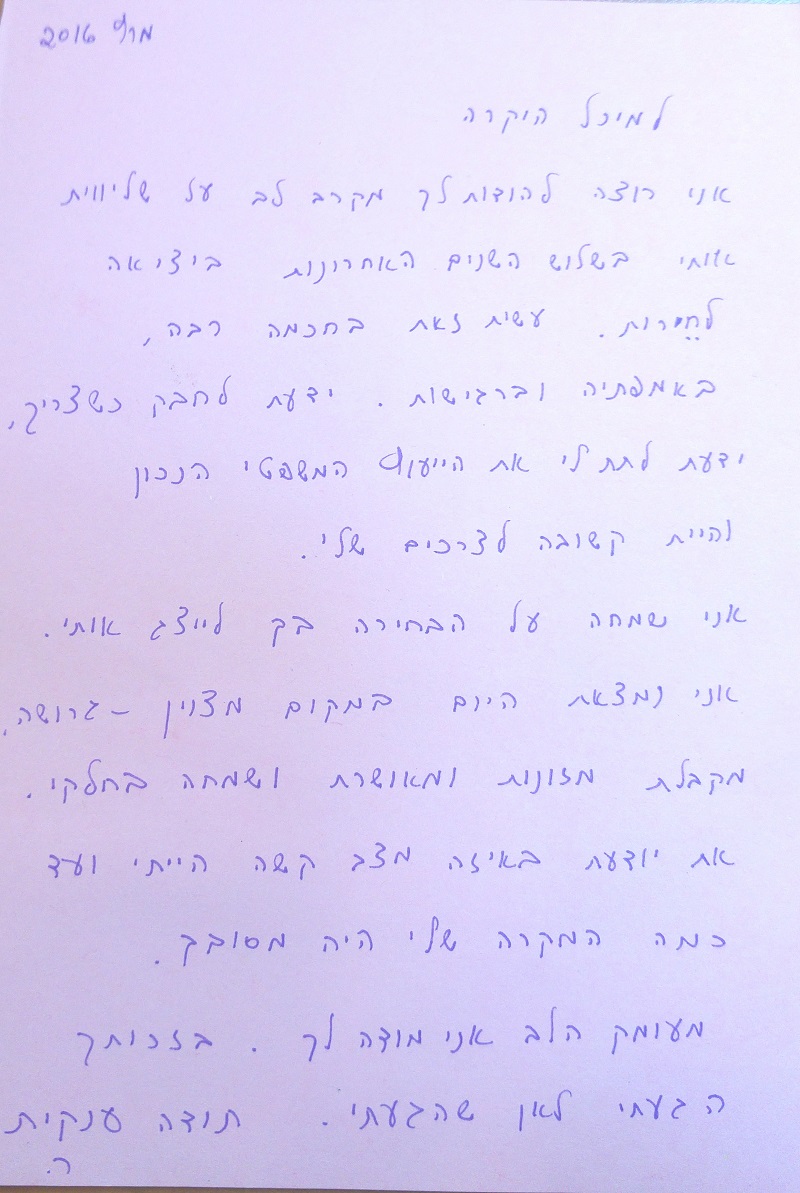 מרץ 2016
למיכל היקרה
אני רוצה להודות לך מקרב לב על שליווית
אותי בשלוש השנים האחרונות ביציאה
לחֵירות. עשית זאת בחכמה רבה,
באמפתיה וברגישות. ידעת לחבק כשצריך,
ידעת לתת לי את הייעוץ המשפטי הנכון
והיית קשובה לצרכים שלי.
אני שמחה על הבחירה בך לייצג אותי.
אני נמצאת היום במקום מצוין - גרושה,
מקבלת מזונות ומאושרת ושמחה בחלקי.
את יודעת באיזה מצב קשה הייתי ועד
כמה המקרה שלי היה מסובך.
מעומק הלב אני מודה לך. בזכותך
הגעתי לאן שהגעתי. תודה ענקית
ר.